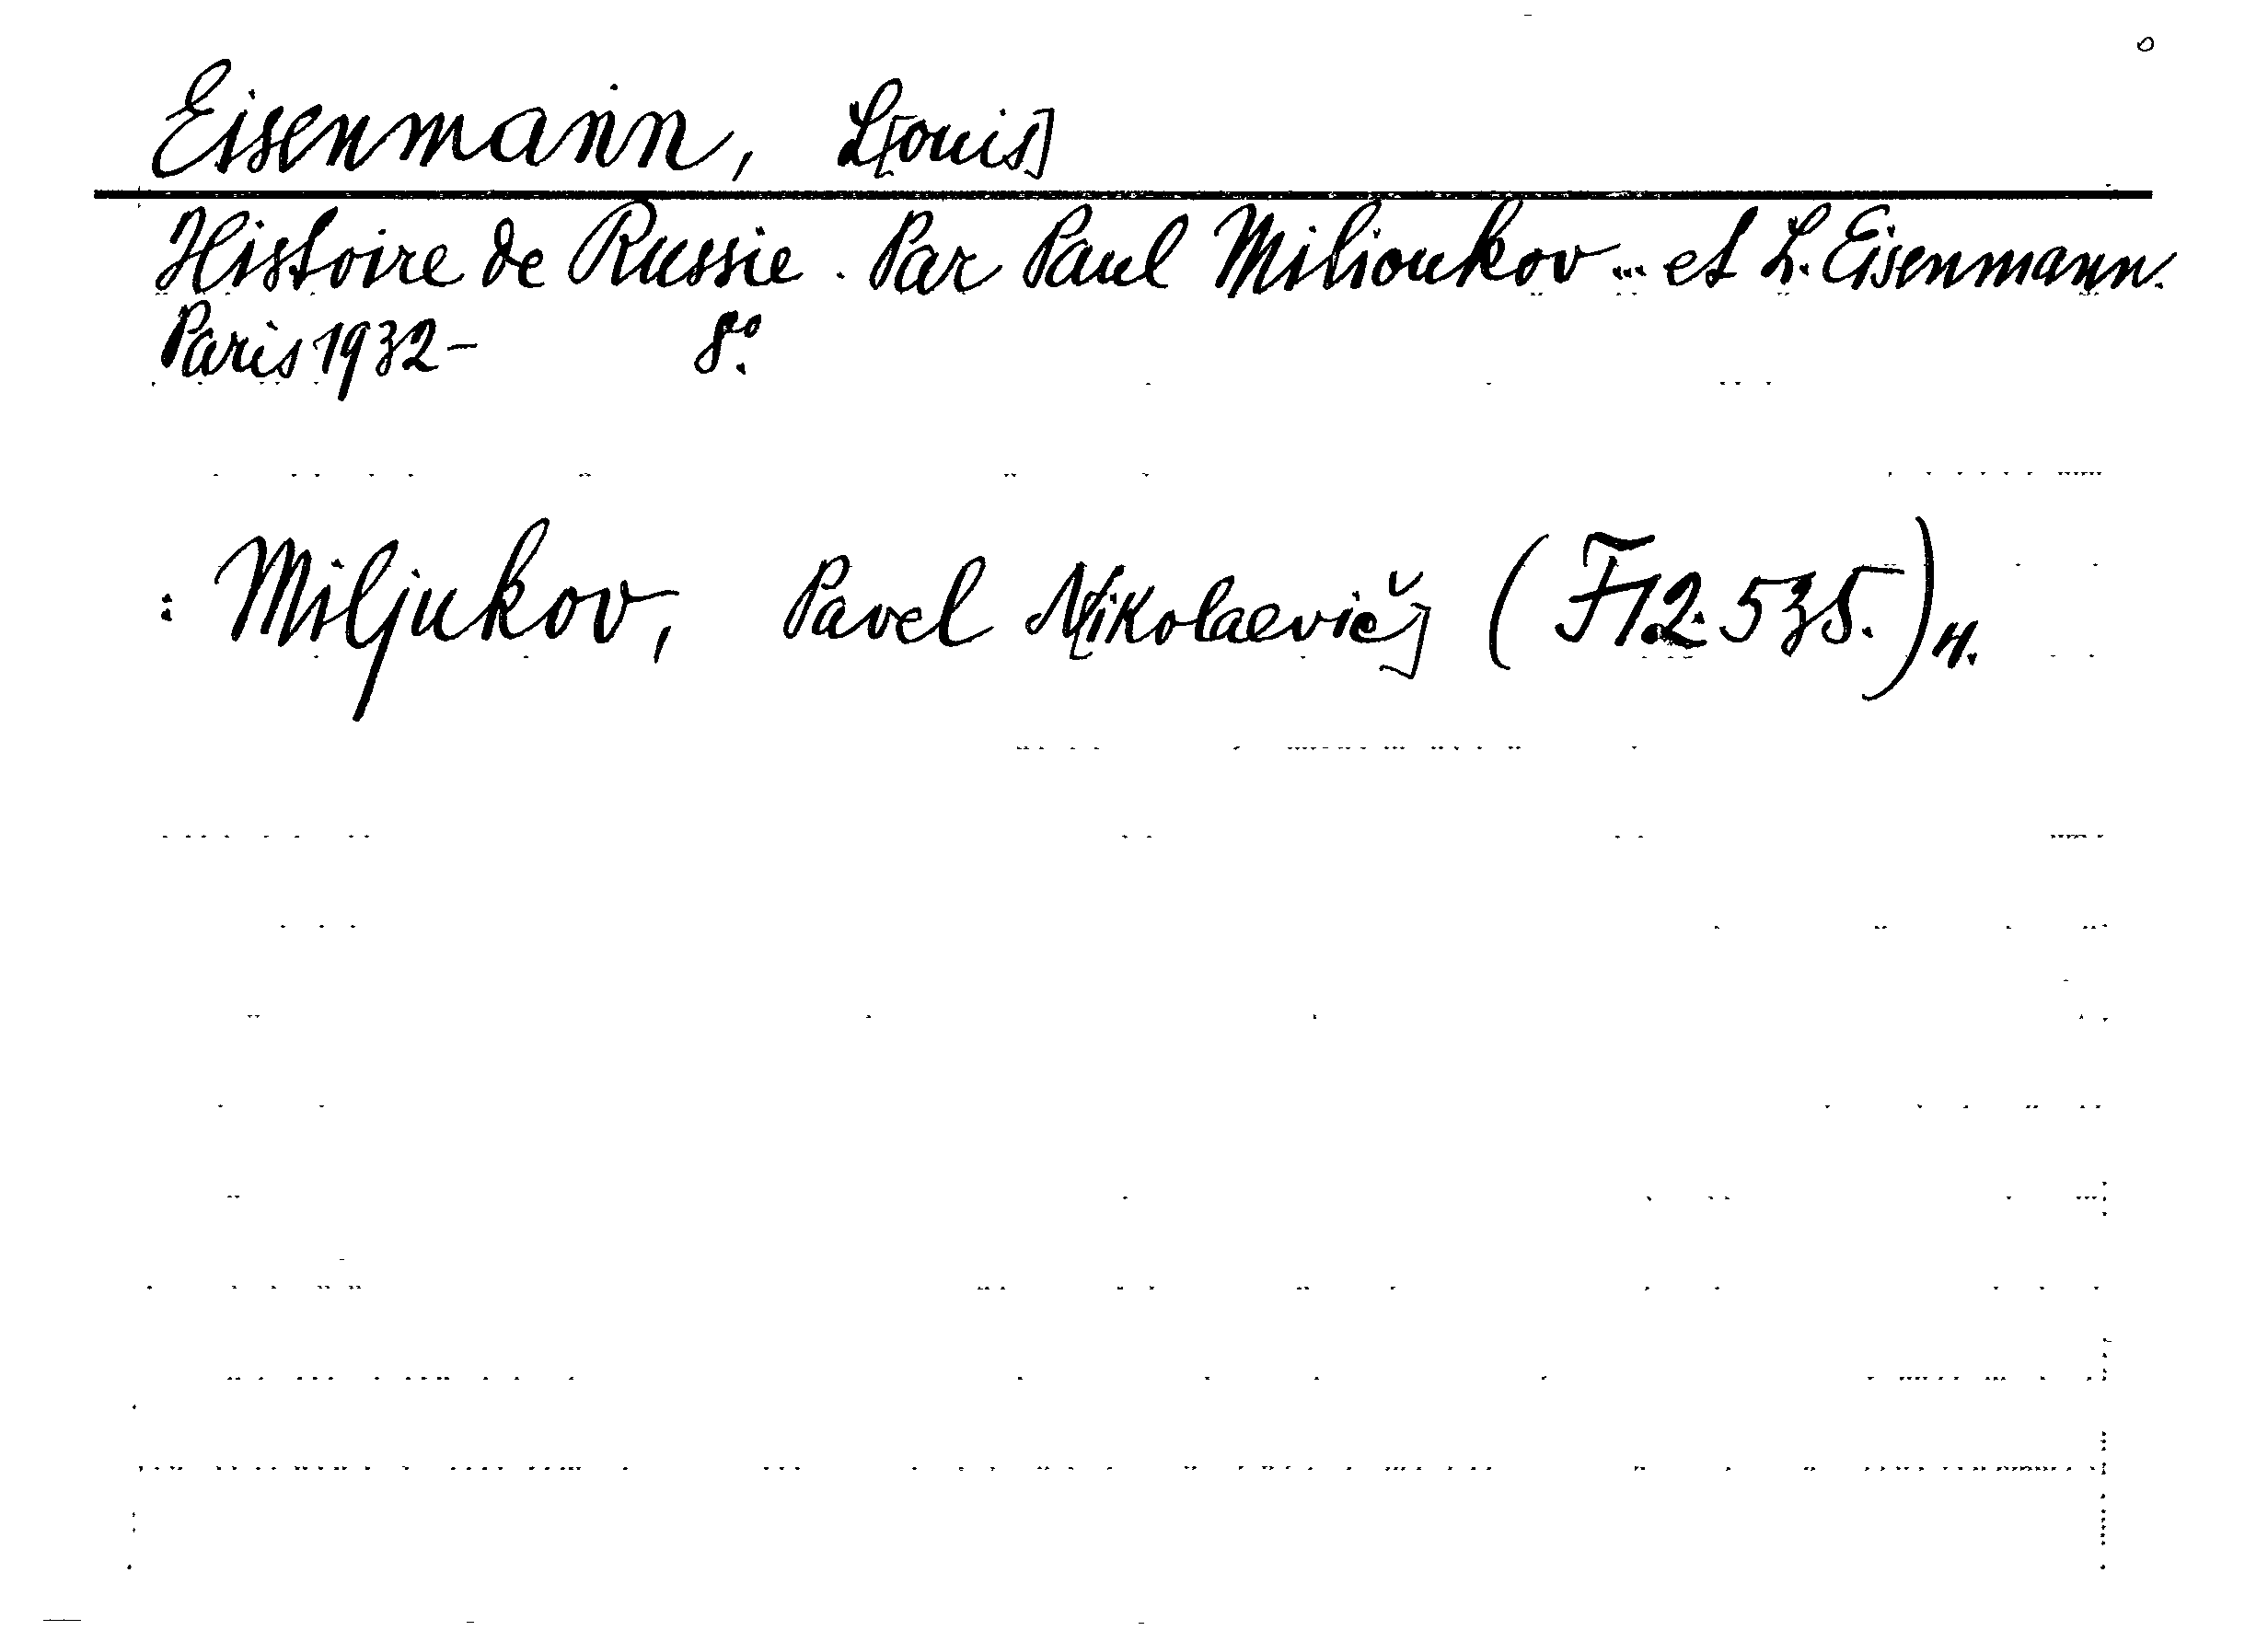 Eisenmann, L[ouis]
Histoire de Russie. Par Paul Milioukov ... et L. Eisenmann.
Paris 1932- 8:o
: Miljukov, Pavel N[ikolaevič] (F12.535.)